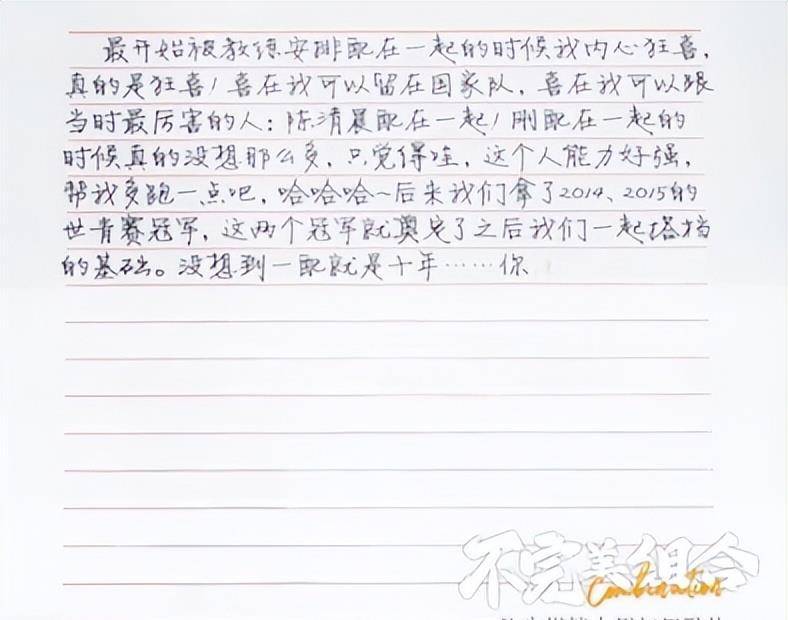 最开始被教练安排配在一起的时候我内心狂喜，
真的是狂喜！喜在我可以留在国家队，喜在我可以跟
当时最厉害的人：陈清晨配在一起！刚配在一起的
时候真的没想那么多，只觉得哇，这个人能力好强，
帮我多跑一点吧，哈哈哈~后来我们拿了2014、2015的
世青赛冠军，这两个冠军就奠定了之后我们一起搭挡
的基础。没想到一配就是十年……你
不完美组合
Combination